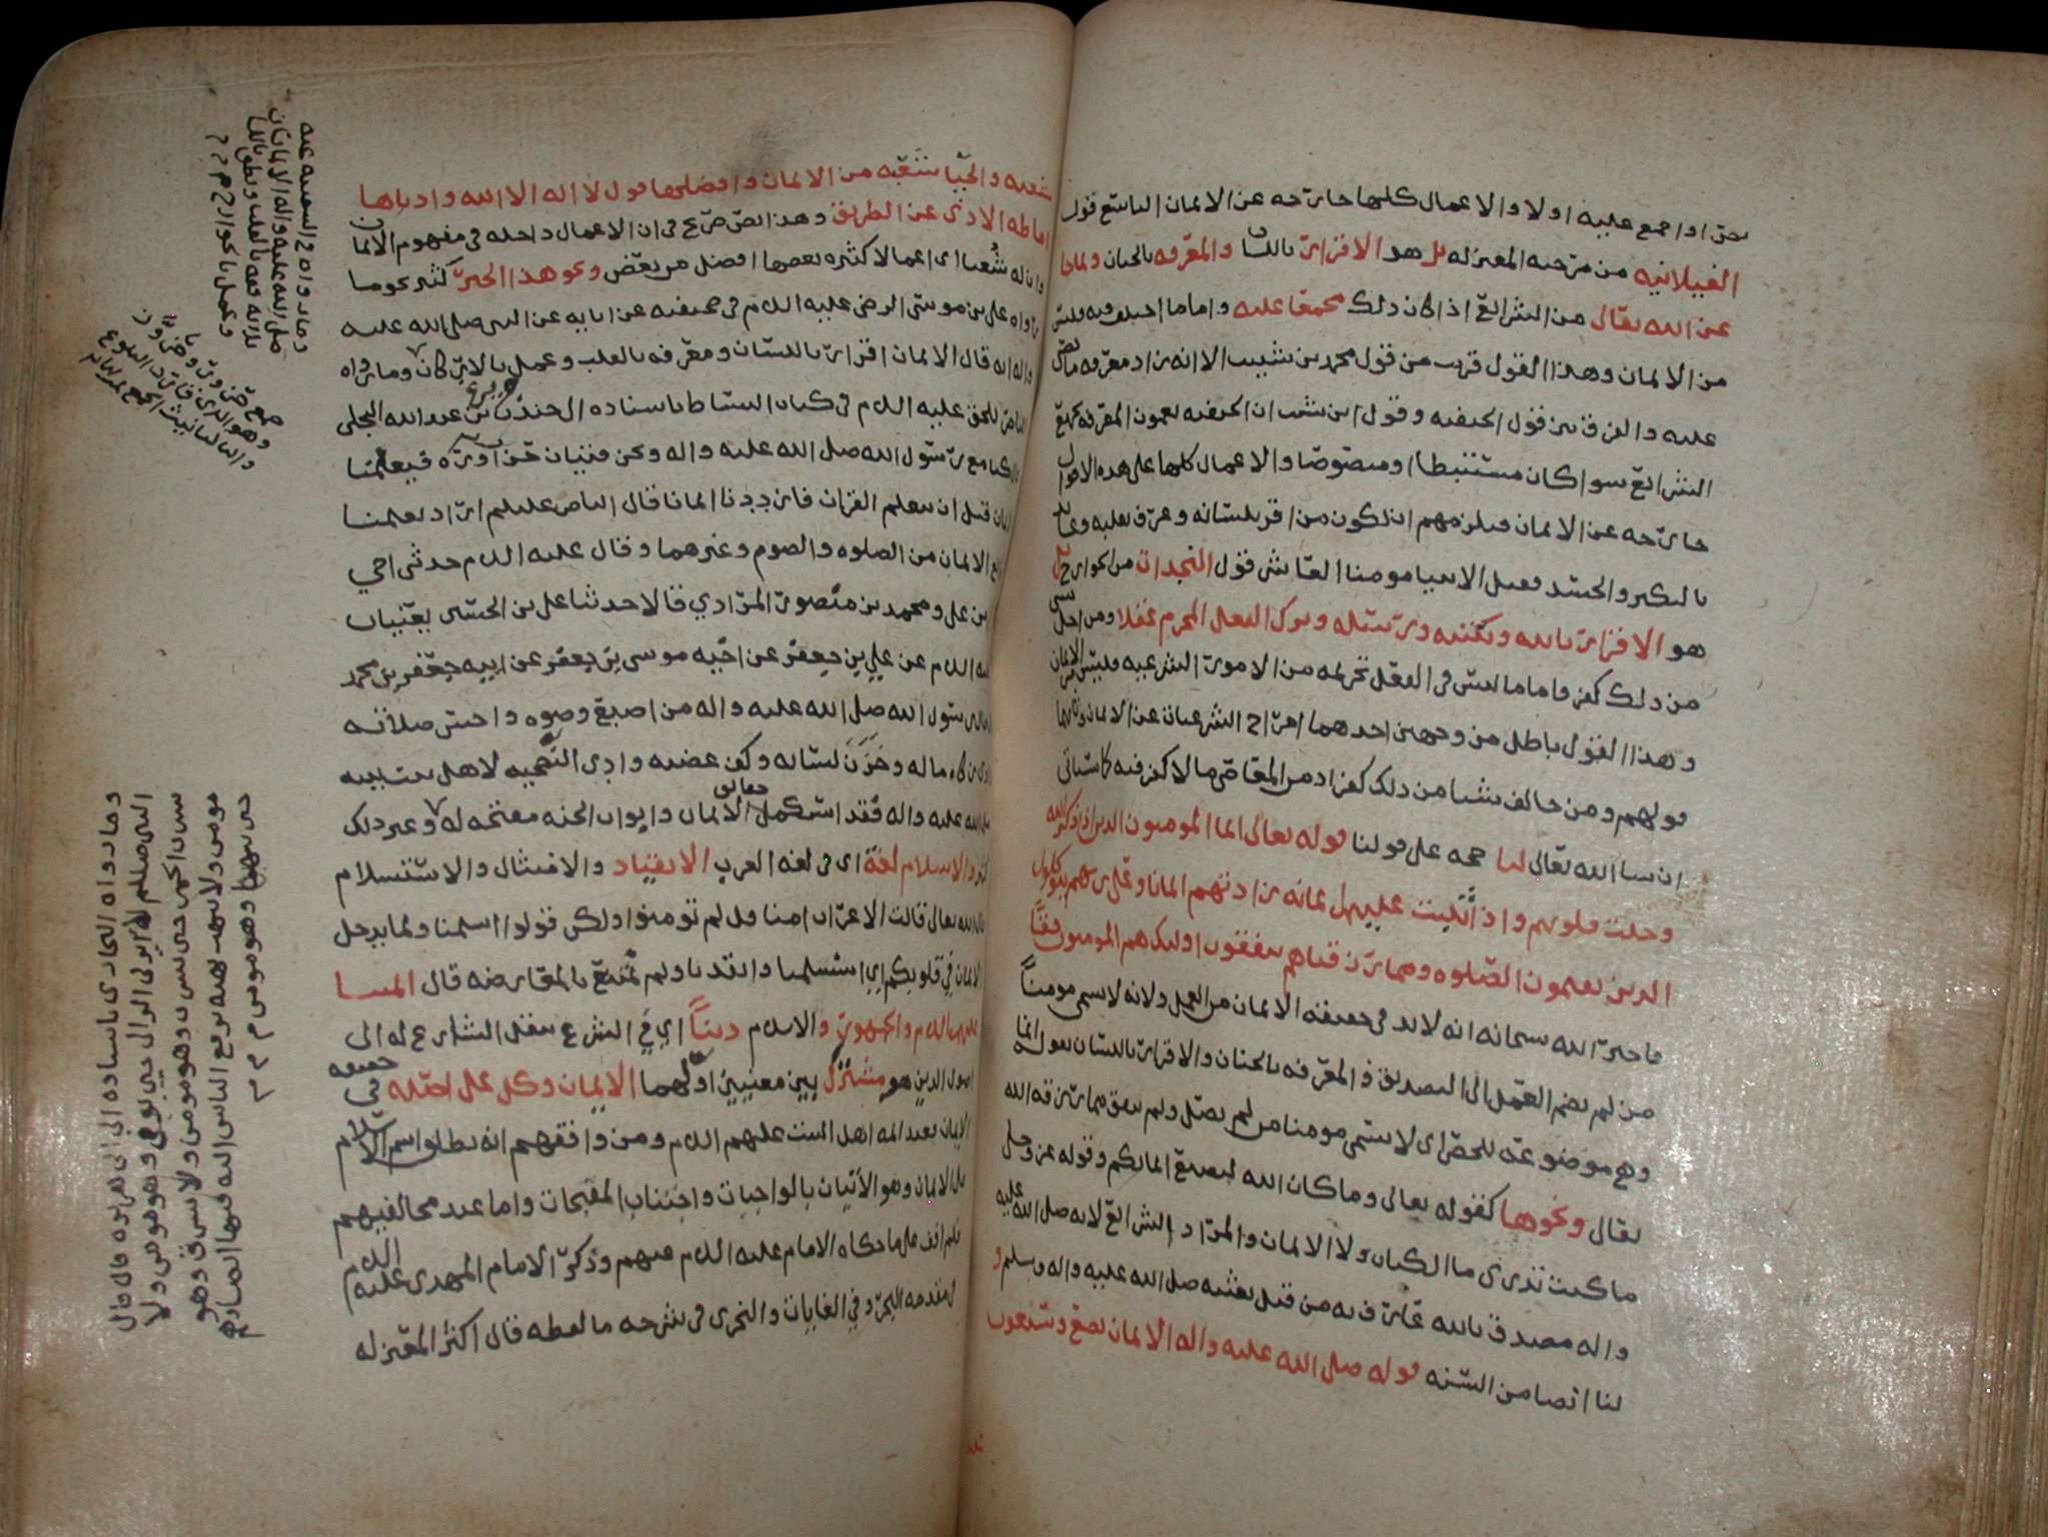 او اجمع عليه اولا والاعمال كلها خارجه عن الايمان التاسع قول
الغيلانيه من مرجيه المعتزله بل هو الاقرار باللسان والمعرفه بالجنان ولما جا
عن الله تعالى من الشرائع اذا كان ذلك مجمعا عليه واما ما اختلف فيه فليس
من الايمان وهذا القول قريب من قول محمد بن شبيب الا انه زاد معرفه ما نص
عليه والفرق بين قول الحنفيه وقول ابن شبيب ان الحنفيه يعمون المعرفه بجميع
الشرائع سوا كان مستنبطا او منصوصا والاعمال كلها على هذه الاقوال
خارجه عن الايمان فيلزمهم ان يكون من اقر بلسانه وعرف بقلبه
بالكبر والحسد فقتل الانبيا مومنا العاشر قول النجدات من الخوارج بل
هو الاقرار بالله وبكتبه ورسله وترك الفعل المحرم عقلا ومن اخل بشي
من ذلك كفر واما ما ليس في العقل تحريمه من الامور الشرعيه فليس من الايمان
وهذا القول باطل من وجهين احدهما اخراج الشرعيات عن الايمان وثانيهما
قولهم ومن خالف شيا من ذلك كفر اذ من المعاصي ما لا كفر فيه كما سياتي
ان شا الله تعالى لنا حجه على قولنا قوله تعالى انما المومنون الذين اذا ذكر الله
وجلت قلوبهم واذا تليت عليهم اياته زادتهم ايمانا وعلى ربهم يتوكلون
الذين يقيمون الصلوه ومما رزقناهم ينفقون اولئك هم المومنون حقا
فاخبر الله سبحانه انه لا بد في حقيقه الايمان من العمل ولانه لا يسمى مومنا
من لم يضم العمل الى التصديق والمعرفه بالجنان والاقرار باللسان بقول انما
وهي موضوعه للحصر اي لا يسمى مومنا من لم يصل ولم ينفق مما رزقه الله
تعالى ونحوها كقوله تعالى وما كان الله ليضيع ايمانكم وقوله عز وجل
ما كنت تدري ما الكتاب ولا الايمان والمراد الشرائع لانه صلى الله عليه
واله مصدق بالله عارف به من قبل بعثته صلى الله عليه واله وسلم و
لنا ايضا من السنه قوله صلى الله عليه واله الايمان بضع وسبعون
شعبه والحيا شعبه من الايمان وافضلها قول لا اله الا الله وادناها
اماطه الاذى عن الطريق وهذا نص صريح في ان الاعمال داخله في مفهوم الايمان
وان له شعبا اي اعمالا كثيره بعضها افضل من بعض ونحو هذا الخبر كثير نحو ما
رواه علي بن موسى الرضى عليه السلم في صحيفته عن ابايه عن النبي صلى الله عليه
واله انه قال الايمان اقرار باللسان ومعرفه بالقلب وعمل بالاركان وما رواه
الناصر للحق عليه السلم في كتاب البساط باسناده الى جندب بن عبد الله البجلي
كنا مع رسول الله صلى الله عليه واله ونحن فتيان حزاوره فيعلمنا
الايمان قبل ان نتعلم القران فازددنا ايمانا قال الناصر عليلم اراد يعلمنا
الايمان من الصلوه والصوم وغيرهما وقال عليه السلم حدثني اخي
بن علي ومحمد بن منصور المرادي قالا حدثنا علي بن الحسن يعنيان
عليه السلم عن علي بن جعفر عن اخيه موسى بن جعفر عن ابيه جعفر بن محمد
قال رسول الله صلى الله عليه واله من اصبغ وضوه واحسن صلاته
وادى زكاه ماله وخزن لسانه وكف غضبه وادى النصيحه لاهل بيت نبيه
صلى الله عليه واله فقد استكمل حقائق الايمان وابواب الجنه مفتحه له وغير ذلك
كثير والاسلام لغة اي في لغه العرب الانقياد والامتثال والاستسلام
قال الله تعالى قالت الاعراب امنا قل لم تومنوا ولكن قولوا اسلمنا ولما يدخل
الايمان في قلوبكم اي استسلمنا وانقدنا ولم نمتنع بالمعارضه قال ائمتنا
عليهم السلم والجمهور والاسلام دينا اي في الشرع بنقل الشارع له الى
اصول الدين هو مشترك بين معنيين اولهما الايمان وكل على اصله في حقيقه
الايمان فعند ائمه اهل البيت عليهم السلم ومن وافقهم انه يطلق اسم الاسلام
على الايمان وهو الاتيان بالواجبات واجتناب المقبحات واما عند مخالفيهم
فلم اقف على ما حكاه الامام عليه السلم عنهم وذكر الامام المهدي عليه السلم
في مقدمه البحر وفي الغايات والنجري في شرحه ما لفظه قال اكثر المعتزله
ومما رواه في السفينه عنه
صلى الله عليه واله الايمان
ثلاثه معرفه بالقلب ونطق باللسان
وعمل بالجوارح م م م
جمع حزور وحزور
وهو الذي قارب البلوغ
والتا لتانيث الجمع
ومما رواه البخاري باسناده الى ابي هريره قال قال
النبي صلعلم لا يزني الزاني حين يزني وهو مومن ولا
يشرب الخمر حين يشرب وهو مومن ولا يسرق وهو
مومن ولا ينتهب نهبه يرفع الناس اليه فيها ابصارهم
حين ينتهبها وهو مومن م م م